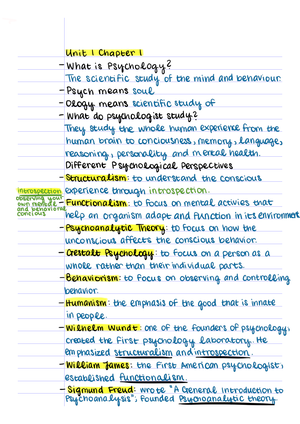 Unit 1 Chapter 1
- What is Psychology?
The scientific study of the mind and behaviour.
- Psych means soul
- Ology means scientific study of
- What do psychologist study?
They study the whole human experience from the
human brain to conciousness, memory, language,
reasoning, personality and mental health.
Different Psychological Perspectives
- Structuralism: to understand the conscious
experience through introspection.
introspection
observing your
own mental
and behavioral
concious
- Functionalism: to focus on mental activies that
help an organism adapt and function in its environment
- Psychoanalytic Theory: to focus on how the
unconscious affects the conscious behavior.
- Gestalt Psychology: to focus on a person as a
whole rather than their individual parts.
- Behaviorism: to focus on observing and controlling
behavior.
- Humanism: the emphasis of the good that is innate
in people.
- Wilhelm Wundt: one of the founders of psychology,
created the first psychology laboratory. He
emphasized structuralism and introspection.
- William James: the first American psychologist,
established functionalism.
- Sigmund Freud: wrote "A General Introduction to
Psychoanalysis", founded Psychoanalytic theory